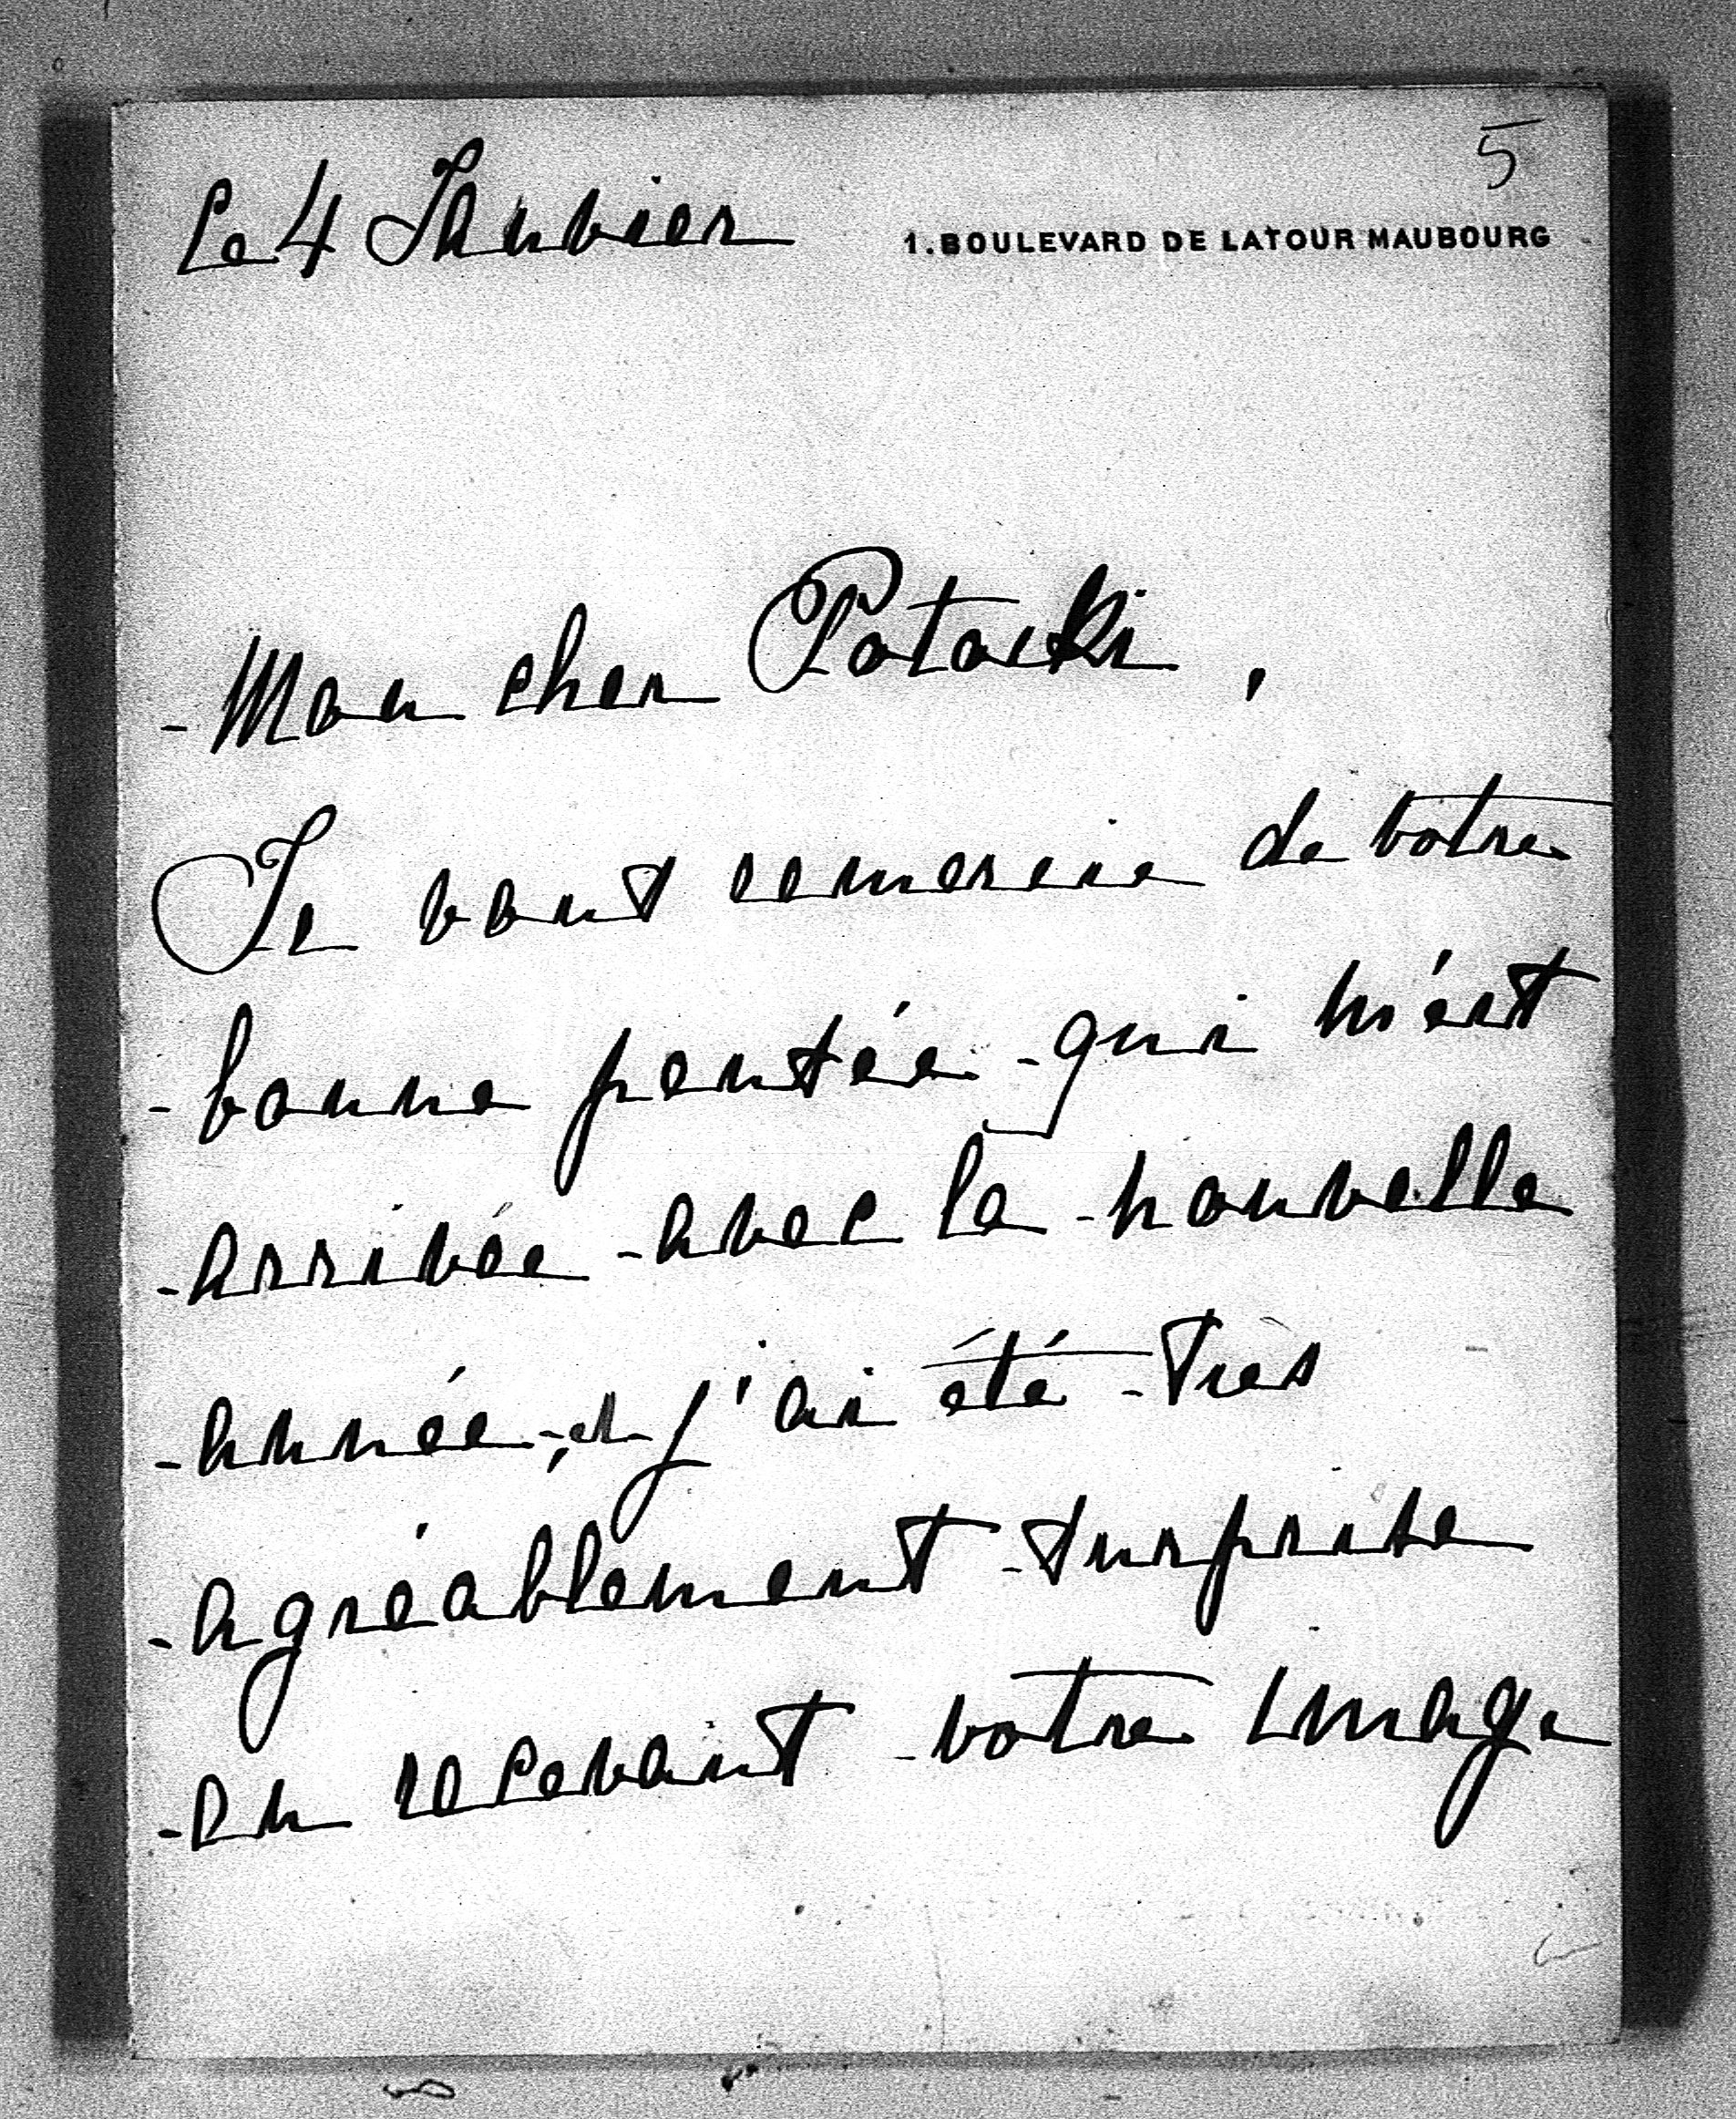 5
Le 4 Janvier
1. BOULEVARD DE LATOUR MAUBOURG
Mon cher Potocki,
Je vous remercie de votre
bonne pensée qui m'est
arrivée avec la nouvelle
année, et j'ai été très
agréablement surprise
en recevant votre image